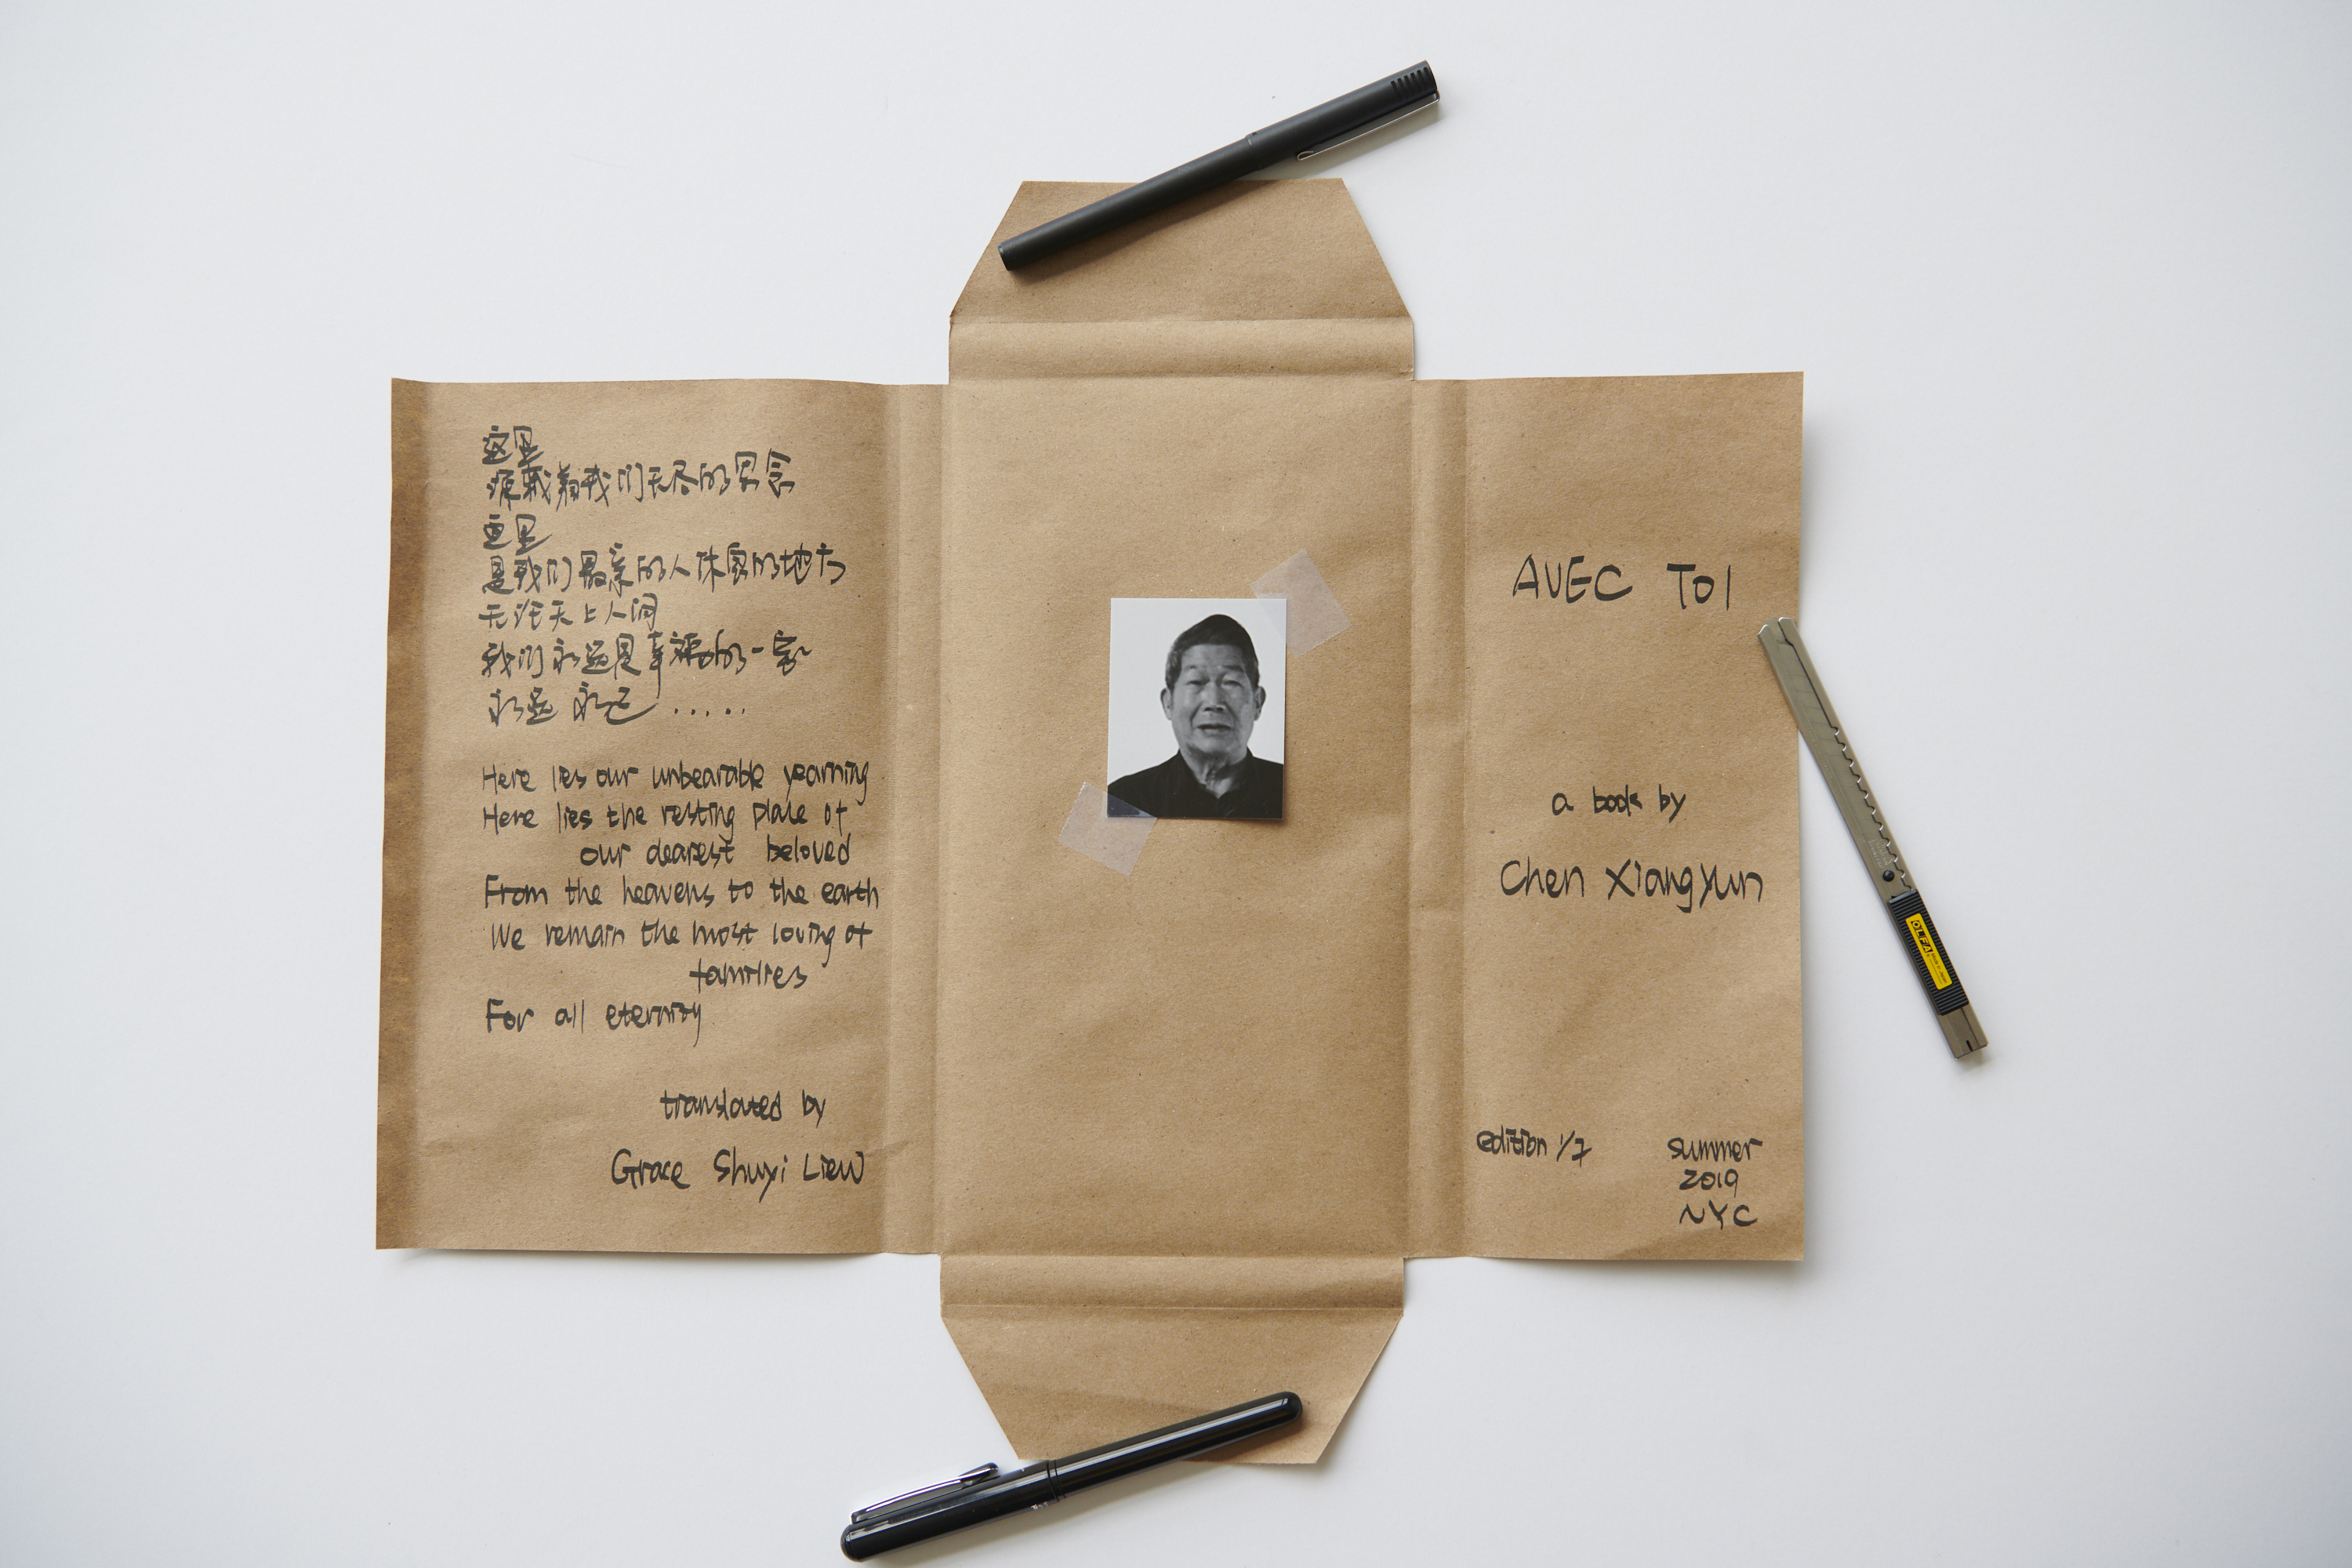 这里
承载着我们无尽的思念
这里
是我们最亲的人休息的地方
无论天上人间
我们永远是幸福的一家
永远 永远 .....
Here lies our unbearable yearning
Here lies the resting place of
our dearest beloved
From the heavens to the earth
We remain the most loving of
families
For all eternity
translated by
Grace Shuyi Liew
AVEC TOI
a book by
Chen Xiangyun
edition 1/7
summer
2019
NYC
OLFA